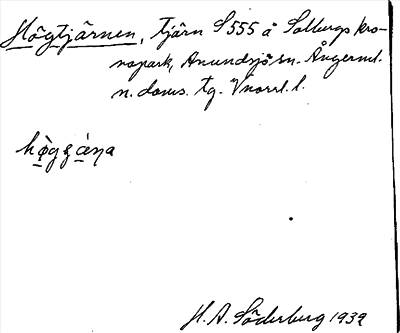 Högtjärnen, tjärn S555 å Solbergs kro-
nopark, Anundsjö sn. Ångerml.
n. doms. tg. Vnorrl. l.
H. A. Söderberg 1939